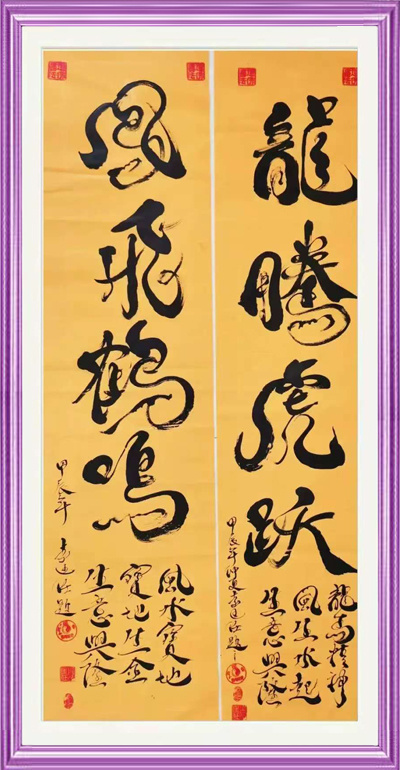 龍騰虎跃
龍马精神
風生水起
生意興隆
甲辰年
鳳飛鶴鳴
風水寶地
寶地生金
生意興隆
甲辰年